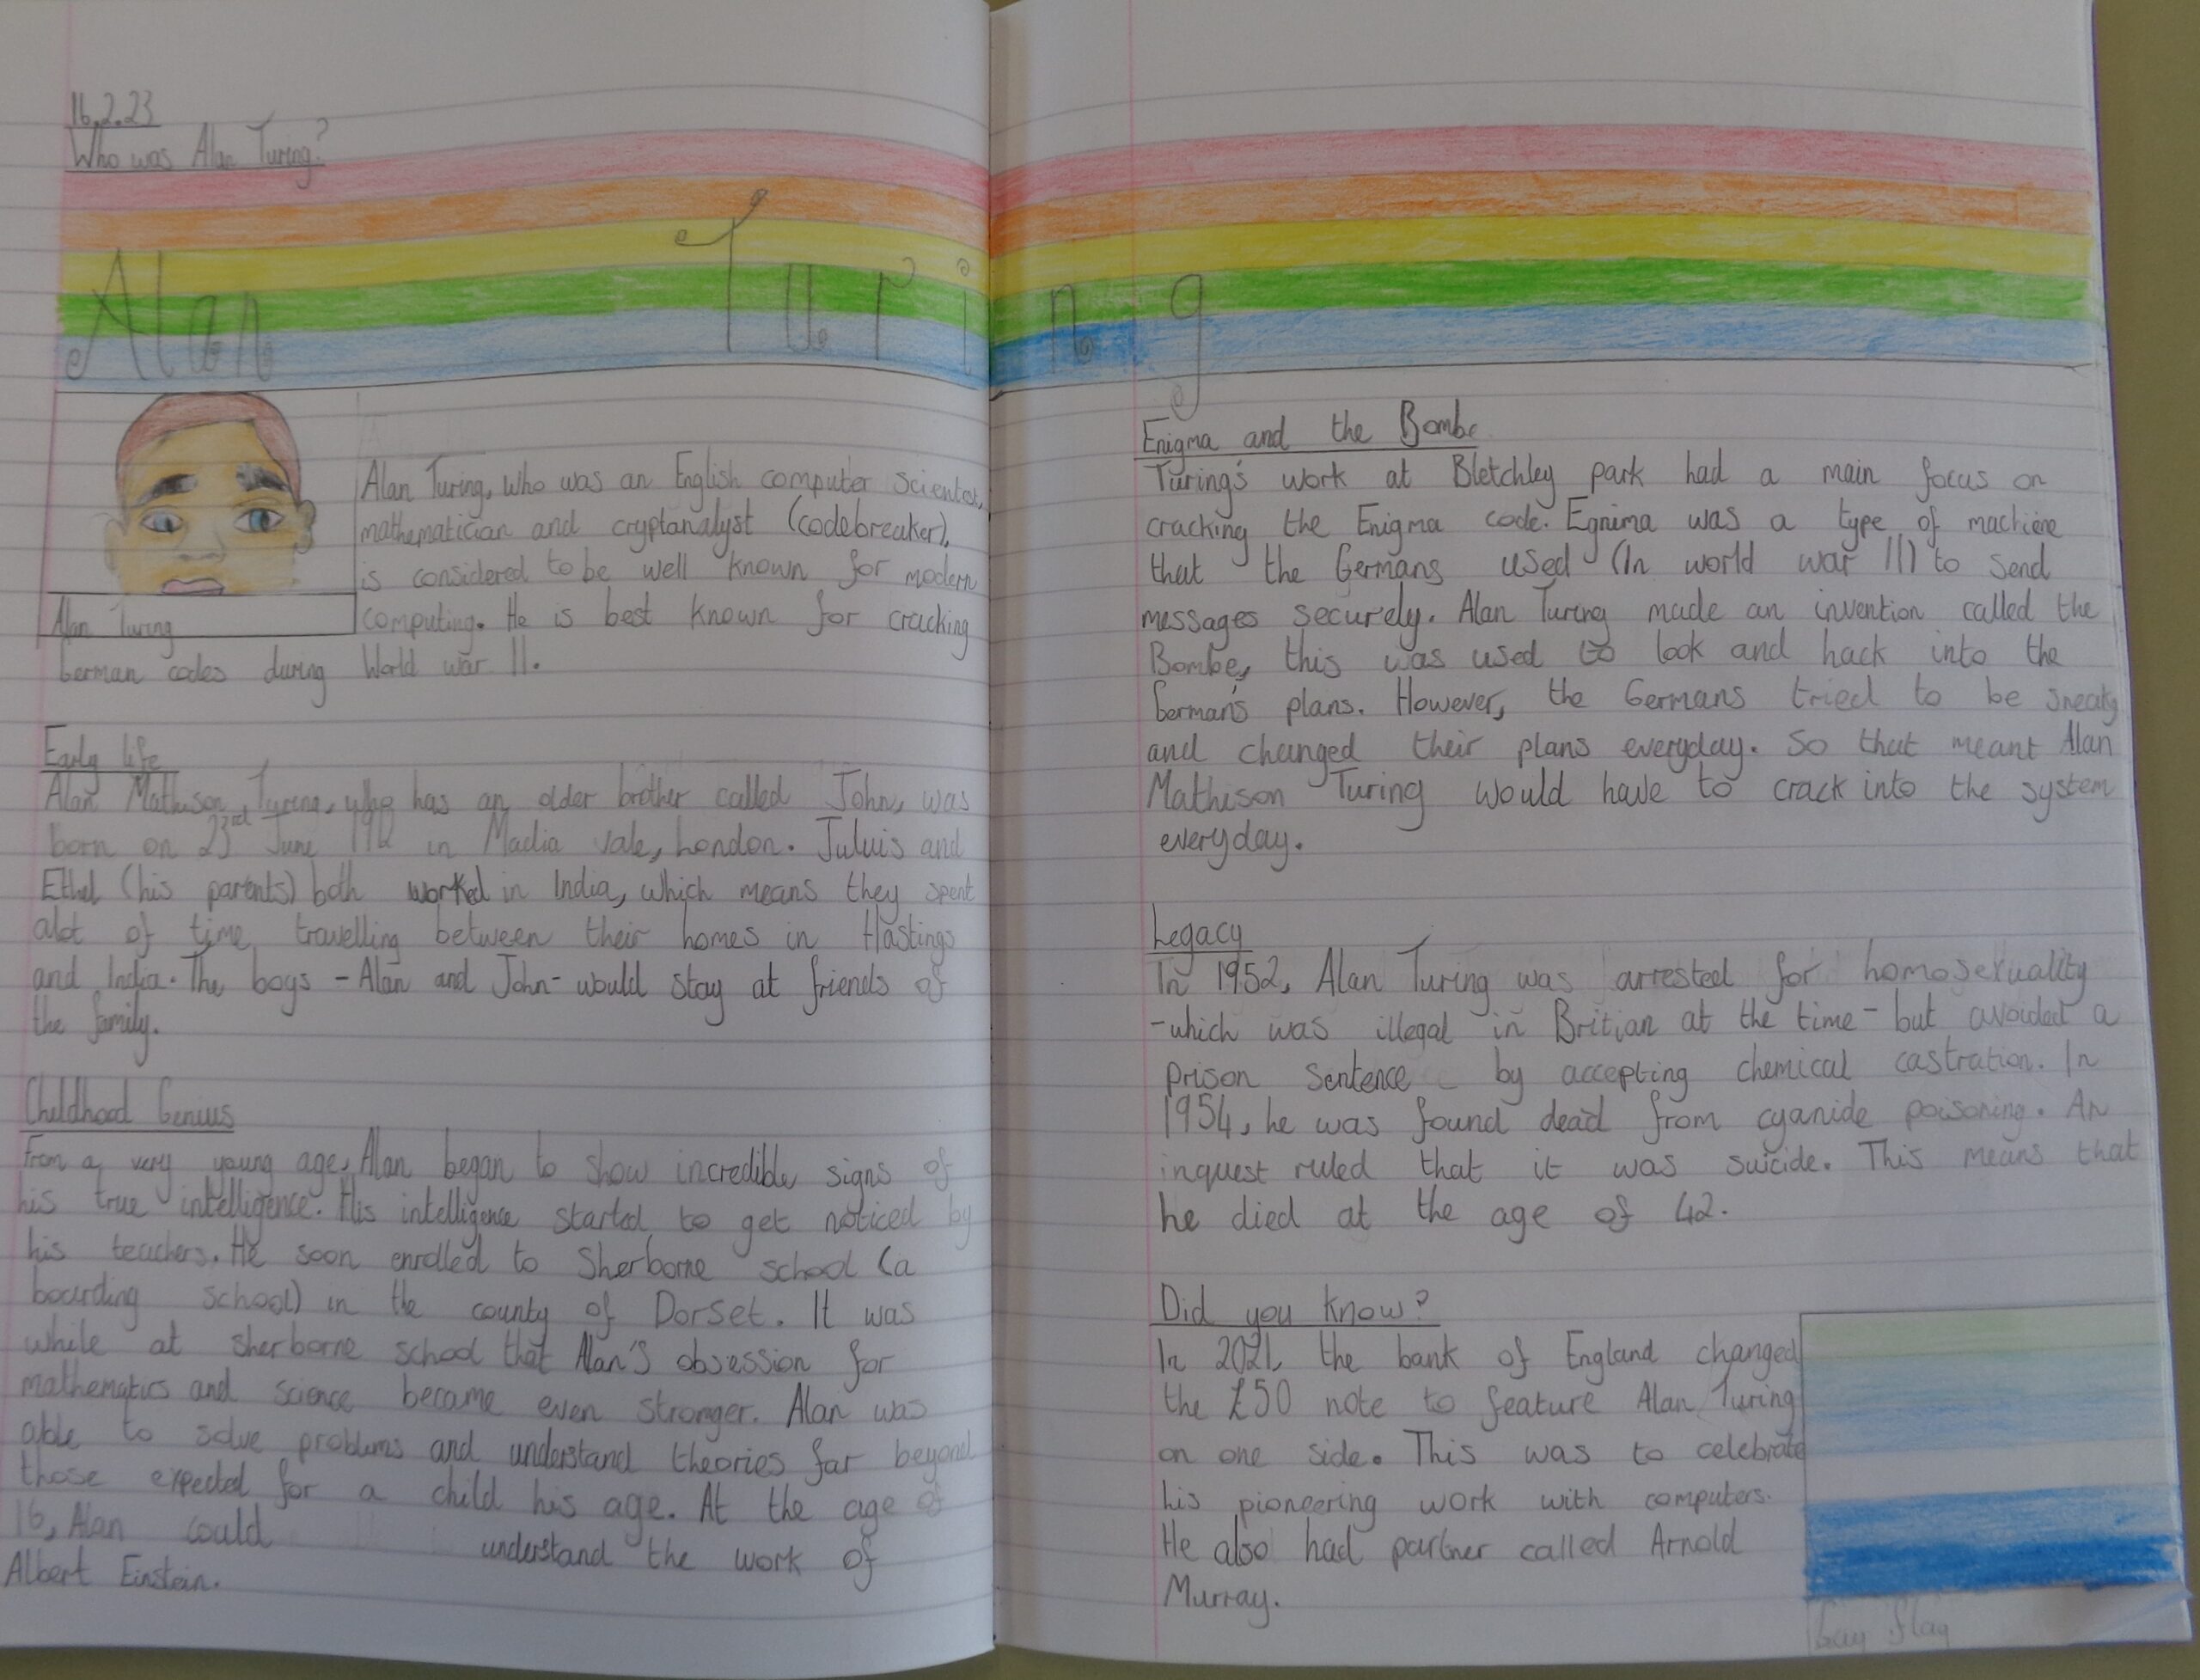 16.2.23
Who was Alan Turing?
Alan Turing
Alan Turing, who was an English computer scientist,
mathematician and cryptanalyst (codebreaker),
is considered to be well known for modern
computing. He is best known for cracking
Alan Turing
German codes during World war II.
Early life
Alan Mathison Turing, who has an older brother called John, was
born on 23rd June 1912 in Madia vale, London. Juluis and
Ethel (his parents) both worked in India, which means they spent
alot of time travelling between their homes in Hastings
and India. The boys - Alan and John - would stay at friends of
the family.
Childhood Genius
From a very young age, Alan began to show incredible signs of
his true intelligence. His intelligence started to get noticed by
his teachers. He soon enrolled to Sherborne school (a
boarding school) in the county of Dorset. It was
while at sherborne school that Alan's obsession for
mathematics and science became even stronger. Alan was
able to solve problems and understand theories far beyond
those expected for a child his age. At the age of
16, Alan could understand the work of
Albert Einstein.
Enigma and the Bombe
Turing's work at Bletchley park had a main focus on
cracking the Enigma code. Egnima was a type of machine
that the Germans used (In world war II) to send
messages securely. Alan Turing made an invention called the
Bombe, this was used to look and hack into the
German's plans. However, the Germans tried to be sneaky
and changed their plans everyday. So that meant Alan
Mathison Turing would have to crack into the system
everyday.
Legacy
In 1952, Alan Turing was arrested for homosexuality
-which was illegal in Britian at the time - but avoided a
prison sentence by accepting chemical castration. In
1954, he was found dead from cyanide poisoning. An
inquest ruled that it was suicide. This means that
he died at the age of 42.
Did you know?
In 2021, the bank of England changed
the £50 note to feature Alan Turing
on one side. This was to celebrate
his pioneering work with computers.
He also had partner called Arnold
Murray.
Gay flag